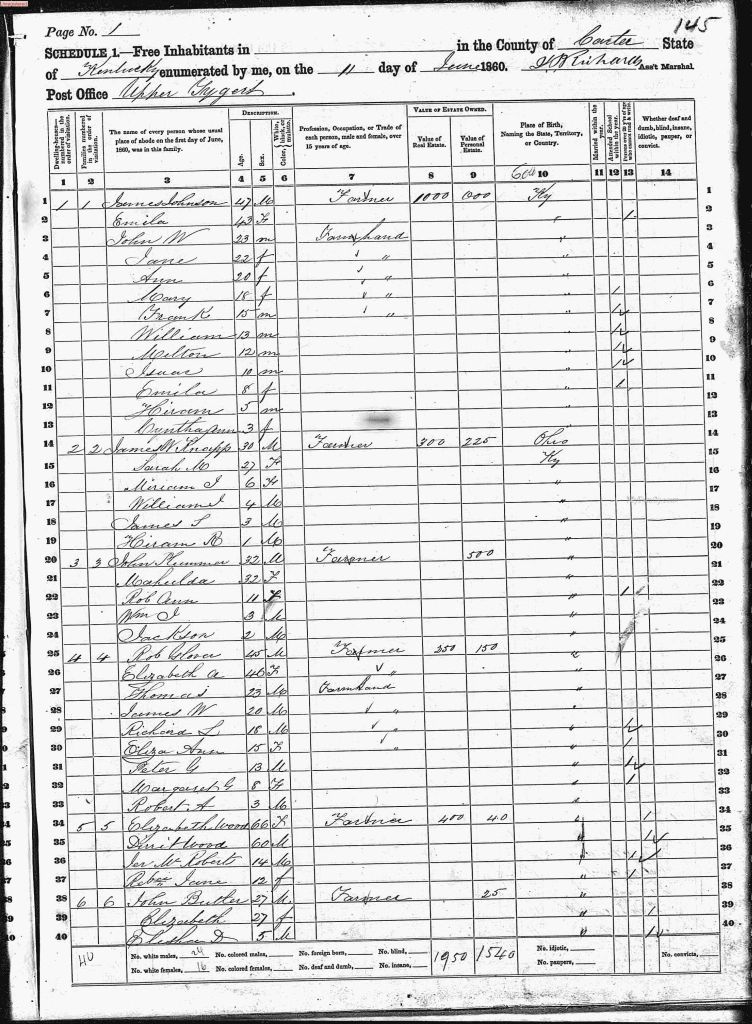 145
Page No. 1
SCHEDULE 1.—Free Inhabitants in in the County of Carter State
of Kentucky enumerated by me, on the 11 day of June 1860. Ass't Marshal.
Post Office Upper Tygert.
Dwelling-houses numbered in the order of visitation.
Families numbered in the order of visitation.
The name of every person whose usual place of abode on the first day of June, 1860, was in this family.
DESCRIPTION.
Age.
Sex.
Color, White, black, or mulatto.
Profession, Occupation, or Trade of each person, male and female, over 15 years of age.
VALUE OF ESTATE OWNED.
Value of Real Estate.
Value of Personal Estate.
Place of Birth, Naming the State, Territory, or Country.
Married within the year.
Attended School within the year.
Whether deaf and dumb, blind, insane, idiotic, pauper, or convict.
1 2 3 4 5 6 7 8 9 10 11 12 13 14
1 1 1 James Johnson 47 M Farmer 1000 Ky 1
2 Emila 43 F " 1 2
3 John W 23 m Farm hand " 3
4 Jane 22 f " " 4
5 Ann 20 f " " 5
6 Mary 18 f " " 1 6
7 Frank 15 m " " 1 7
8 William 13 m " 1 8
9 Melton 12 m " 1 9
10 Isaac 10 m " 1 10
11 Emila 8 f " 1 11
12 Hiram 5 m " 12
13 Cyntha Ann 3 f " 13
14 2 2 James W Knapp 30 M Farmer 300 225 Ohio 14
15 Sarah M 27 F Ky 15
16 Miriam J 6 F " 16
17 William J 4 M " 17
18 James S 3 M " 18
19 Hiram R 1 M " 19
20 3 3 John 32 M Farmer 500 " 20
21 32 F " 21
22 Rob Ann 11 F " 1 22
23 Wm J 3 M " 23
24 Jackson 2 M " 24
25 4 4 Rob Glover 45 M Farmer 250 150 " 25
26 Elizabeth A 46 F " " 26
27 Thomas 23 M Farm hand " 27
28 James W 20 M " " 28
29 Richard S 18 M " " 1 29
30 Eliza Ann 15 F " " 1 30
31 Peter G 13 M " 1 31
32 Margaret G 8 F " 1 32
33 Robert A 3 M " 33
34 5 5 Elizabeth Wood 66 F Farmer 400 40 " 1 34
35 Wood 60 M " 1 35
36 Mc Robert 14 M " 1 36
37 Jane 12 f " 1 37
38 6 6 John Butler 27 M Farmer 25 " 38
39 Elizabeth 27 f " 1 39
40 Elisha D 5 M " 1 40
40 No. white males, 24 No. colored males, No. foreign born, No. blind, 1950 1540 No. idiotic, No. convicts,
No. white females, 16 No. colored females, No. deaf and dumb, No. insane, No. paupers,